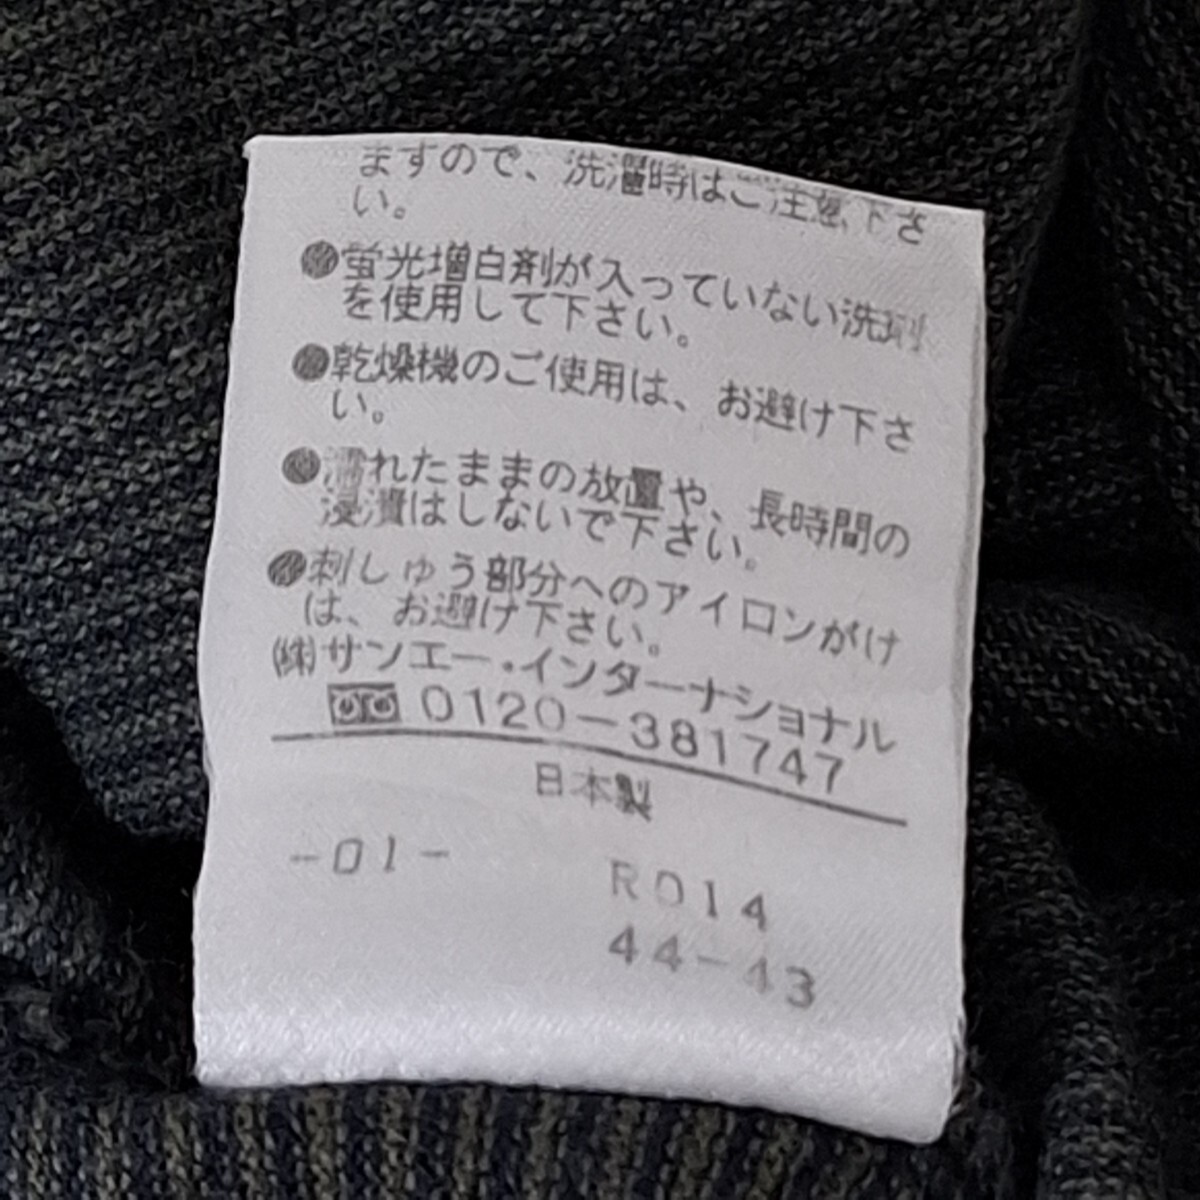 ますので、洗濯時はご注意下さ
い。
●蛍光増白剤が入っていない洗剤
を使用して下さい。
●乾燥機のご使用は、お避け下さ
い。
●濡れたままの放置や、長時間の
浸漬はしないで下さい。
●刺しゅう部分へのアイロンがけ
は、お避け下さい。
㈱サンエー・インターナショナル
0120-381747
日本製
-01-
R014
44-43